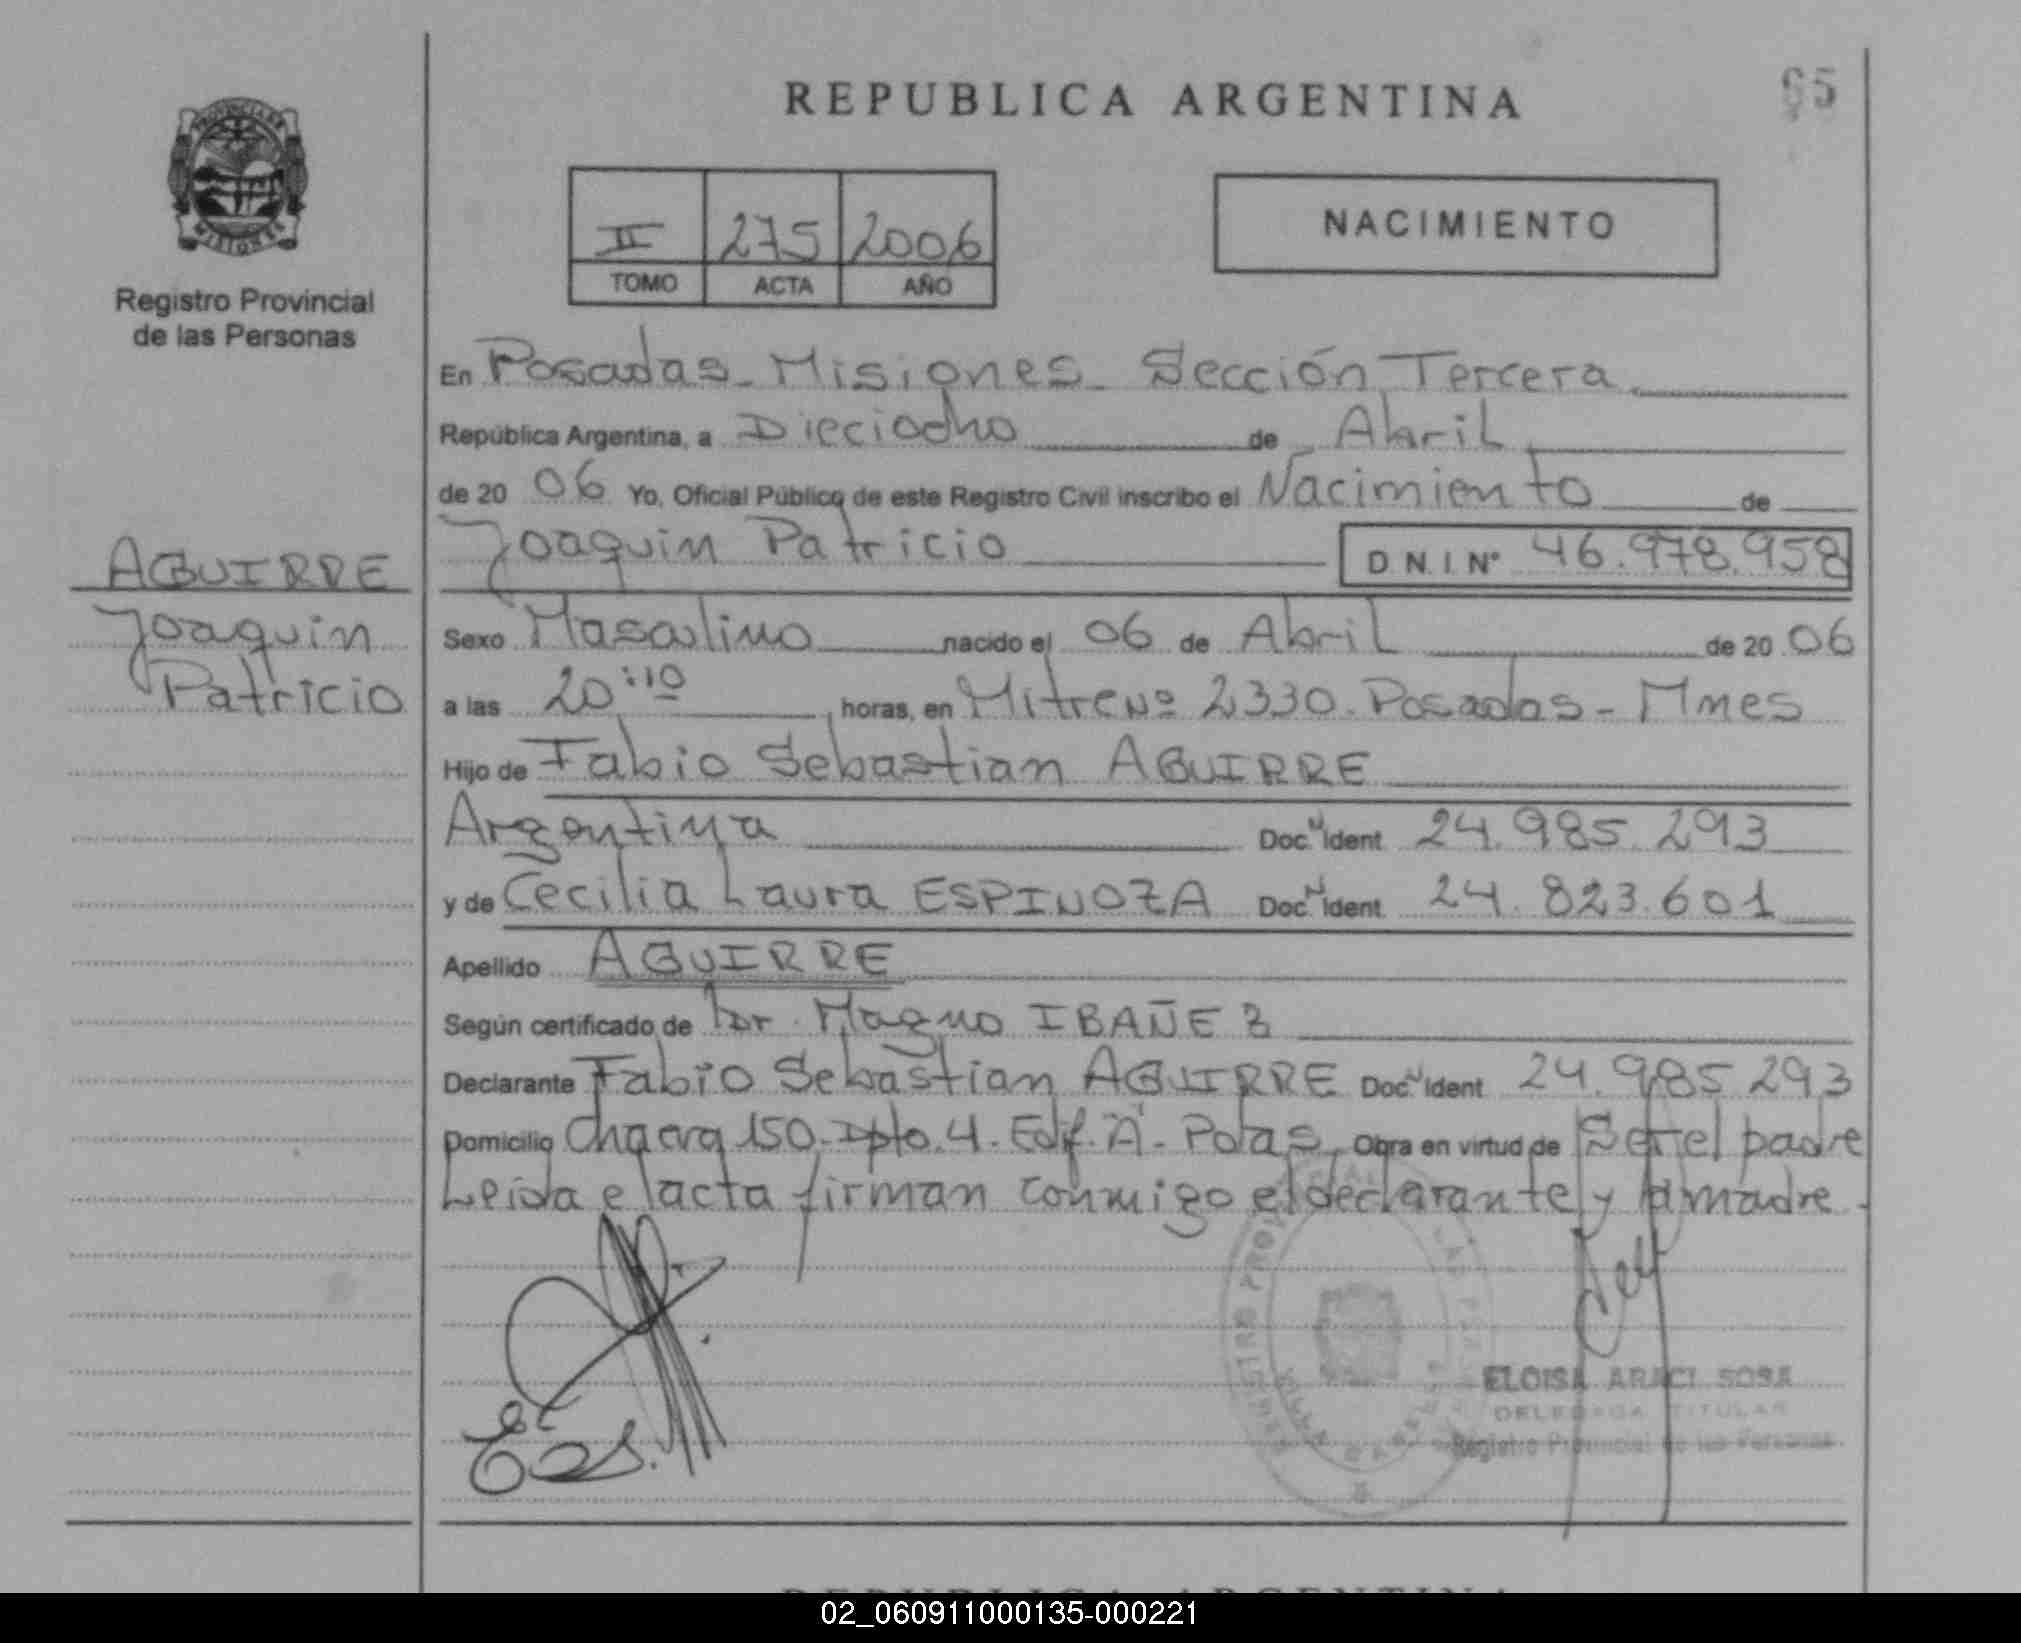 REPUBLICA ARGENTINA
65
PROVINCIA DE
MISIONES
Registro Provincial
de las Personas
II 275 2006
TOMO ACTA AÑO
NACIMIENTO
En Posadas - Misiones - Sección Tercera
República Argentina, a Dieciocho de Abril
de 20 06 Yo, Oficial Público de este Registro Civil inscribo el Nacimiento de
Joaquin Patricio D.N.I. Nº 46.978.958
AGUIRRE
Joaquin
Patricio
Sexo Masculino nacido el 06 de Abril de 20 06
a las 20:10 horas, en Mitre Nº 2330. Posadas - Mnes
Hijo de Fabio Sebastian AGUIRRE
Argentina Doc. Ident. 24.985.293
y de Cecilia Laura ESPINOZA Doc. Ident. 24.823.601
Apellido AGUIRRE
Según certificado de Dr. Magno IBAÑEZ
Declarante Fabio Sebastian AGUIRRE Doc. Ident. 24.985.293
Domicilio Chacra 150. Dpto. 4. Edif. "A". Pdas. Obra en virtud de Ser el padre
Leida el acta firman conmigo el declarante y la madre.
ELOISA ARACI SOSA
DELEGADA TITULAR
Registro Provincial de las Personas
REPUBLICA ARGENTINA
02_060911000135-000221